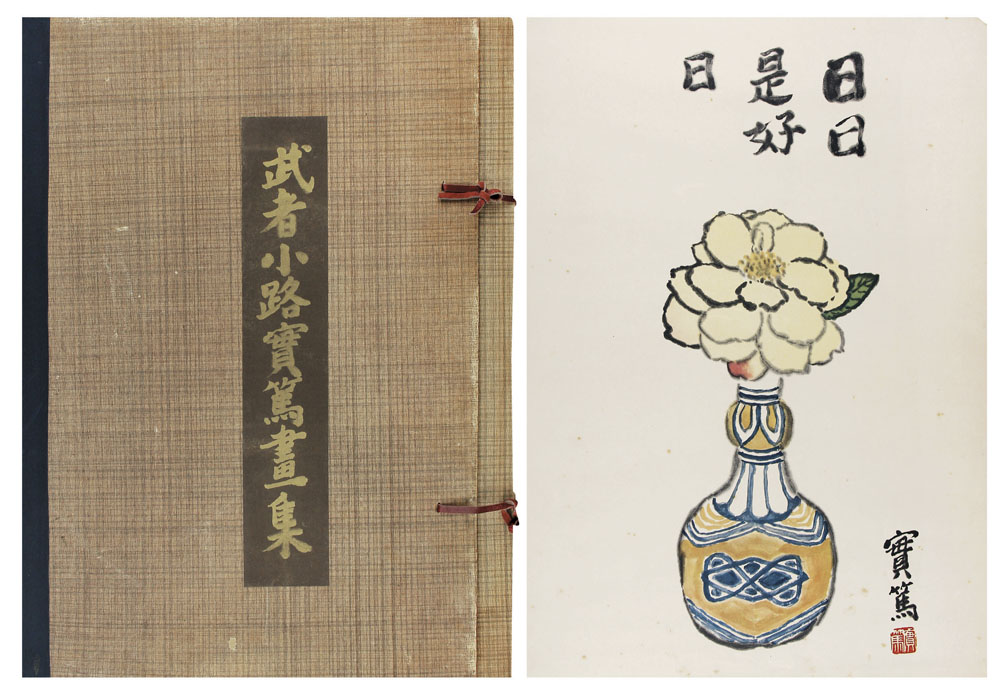 武者小路實篤畫集
日日
是好
日
實篤